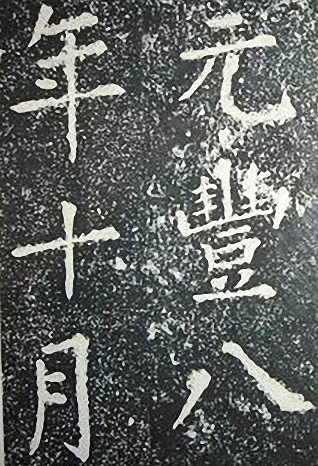 元豐八
年十月